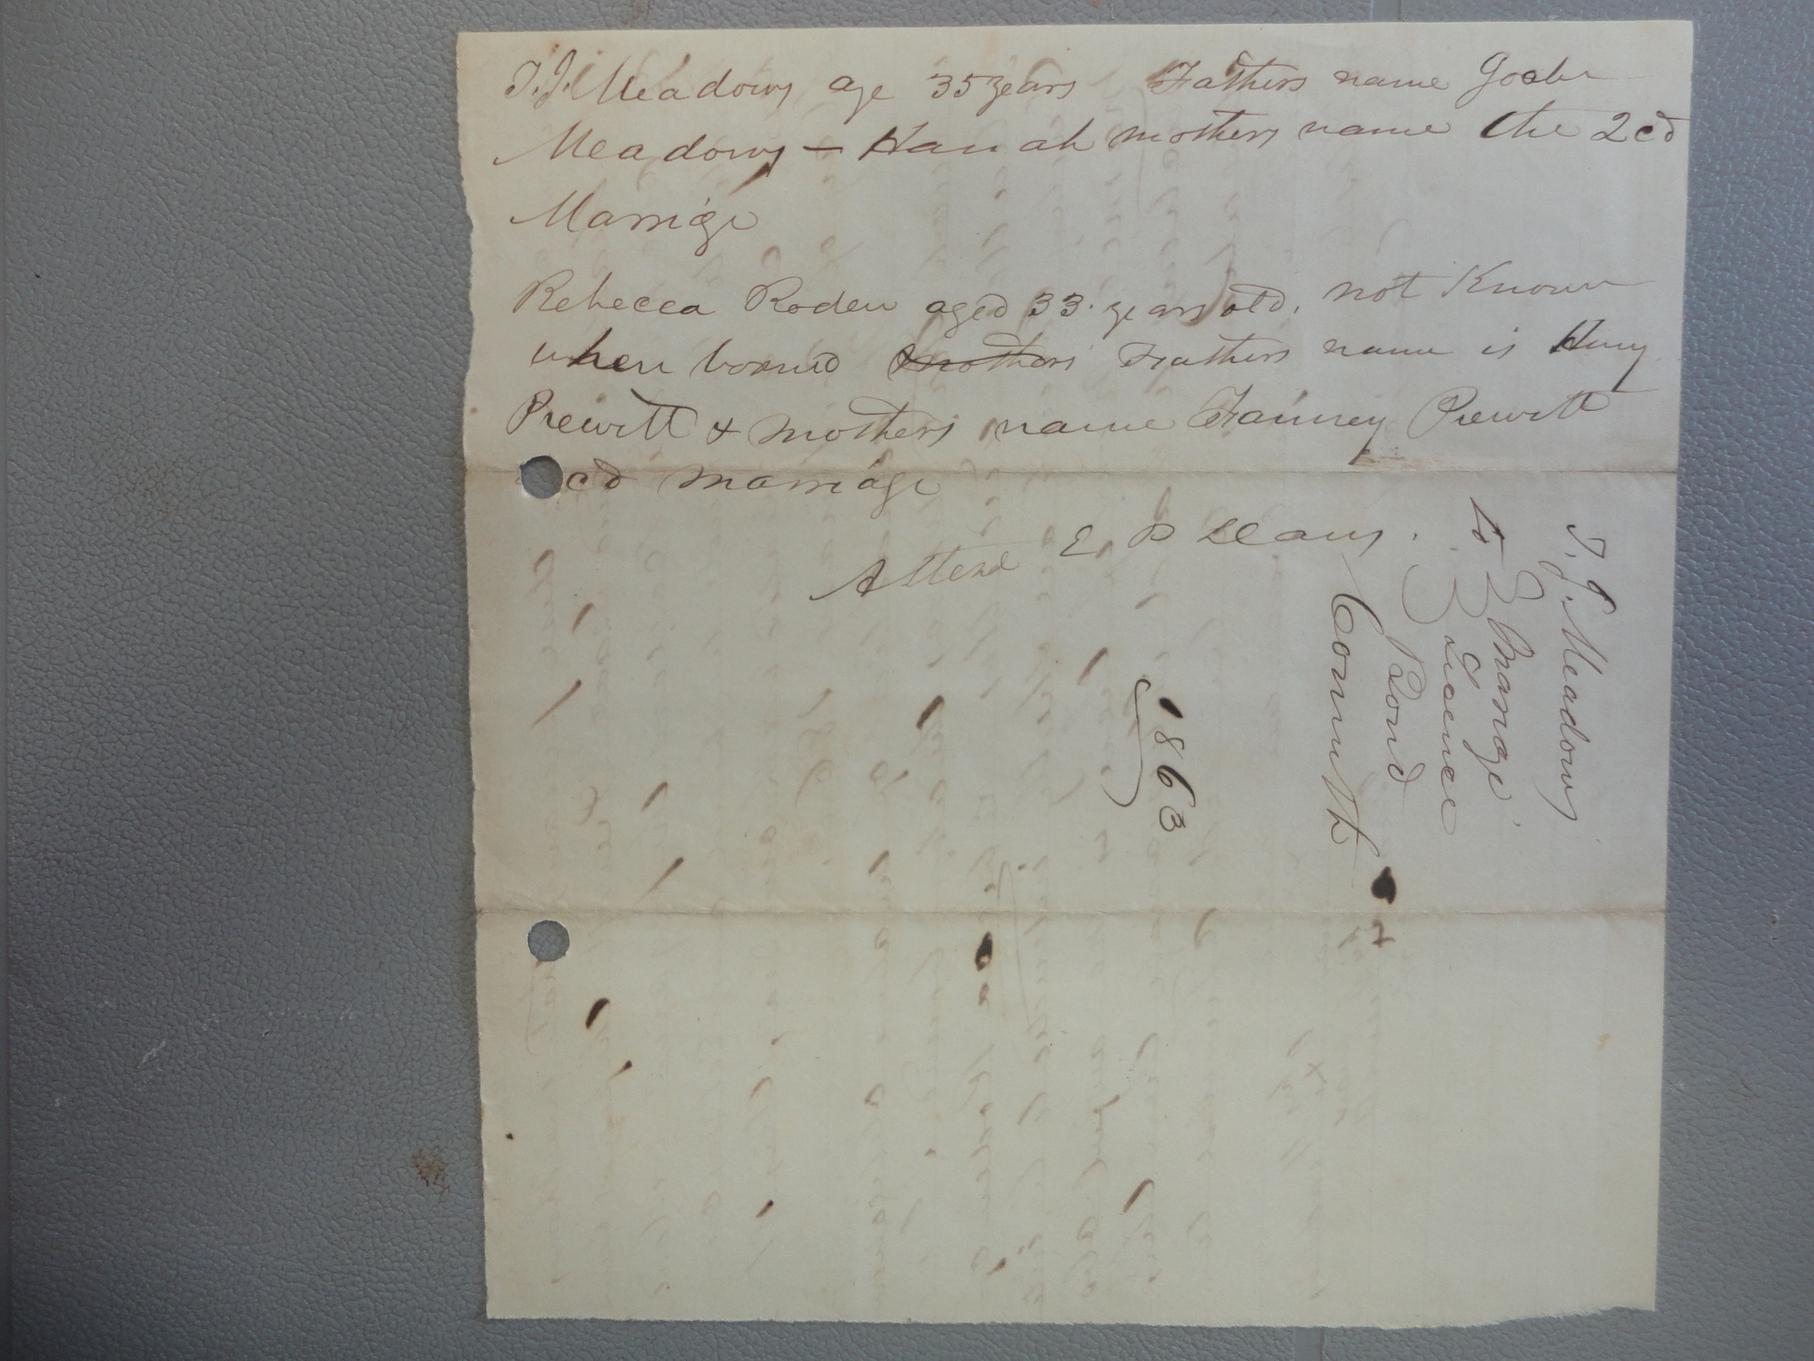 T. J. Meadows age 35 years Fathers name
Meadows — Hanah mothers name the 2cd
Marrige
Rebecca Roden aged 33 years old. not Known
when borned mothers Fathers name is Henry
Prewitt & mothers name Fanney Prewitt
cd marriage
Attest E D
T. J. Meadows
to Marrage
Licence
Bond
Commth
1863